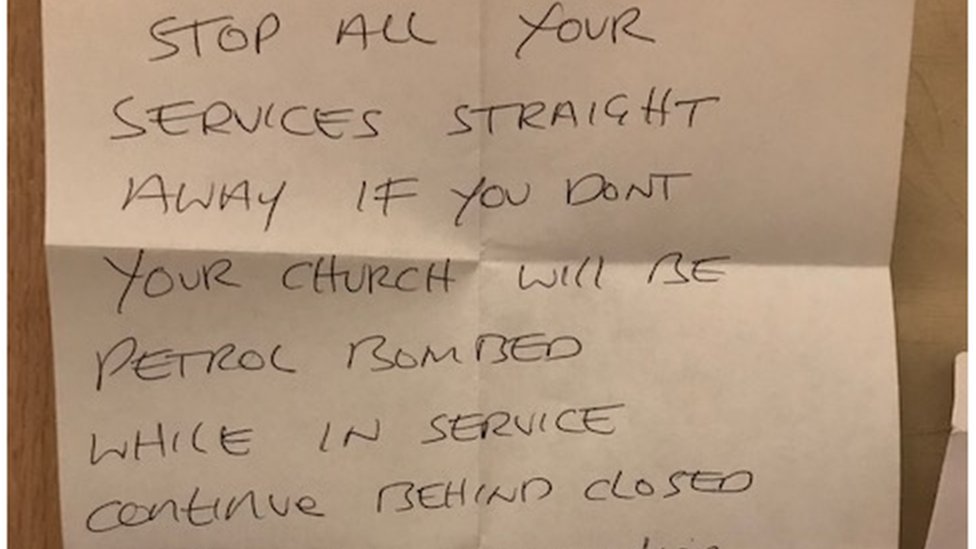 STOP ALL YOUR
SERVICES STRAIGHT
AWAY IF YOU DONT
YOUR CHURCH WILL BE
PETROL BOMBED
WHILE IN SERVICE
CONTINUE BEHIND CLOSED